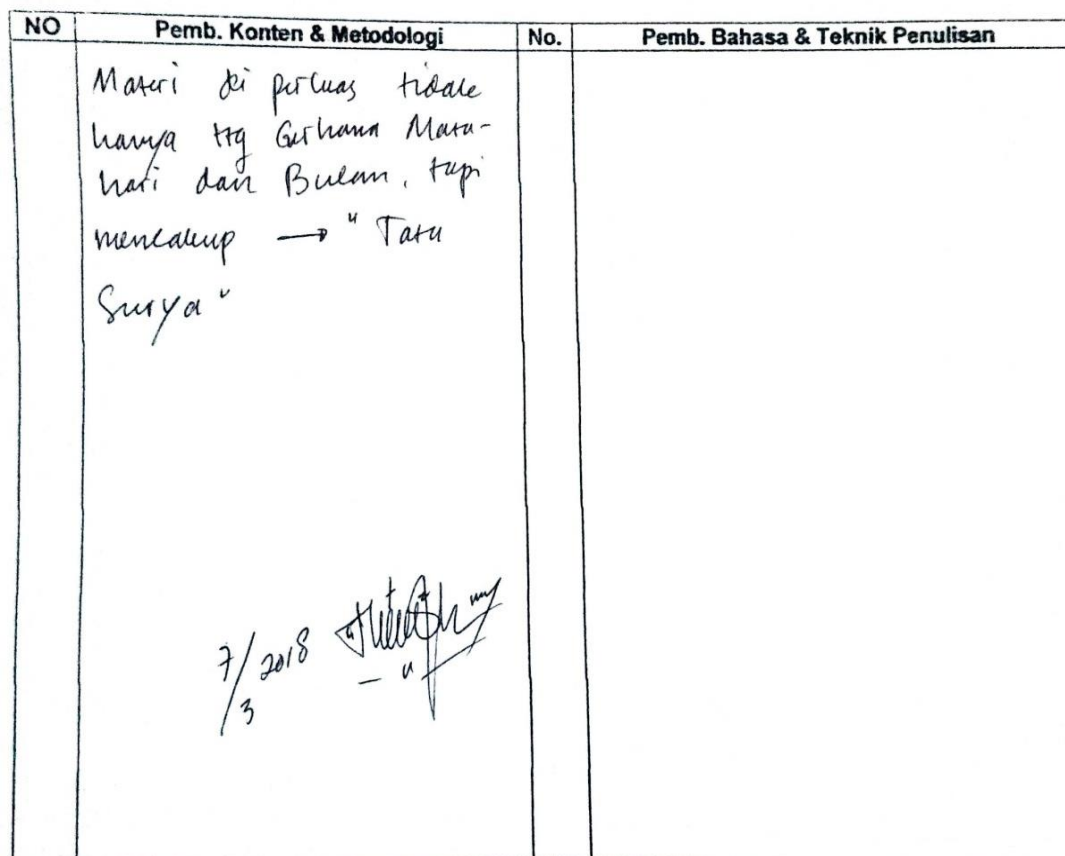 NO Pemb. Konten & Metodologi No. Pemb. Bahasa & Teknik Penulisan
Materi di perluas tidak
hanya ttg Gerhana Mata-
hari dan Bulan, tapi
mencakup → "Tata
Surya"
7/3 2018